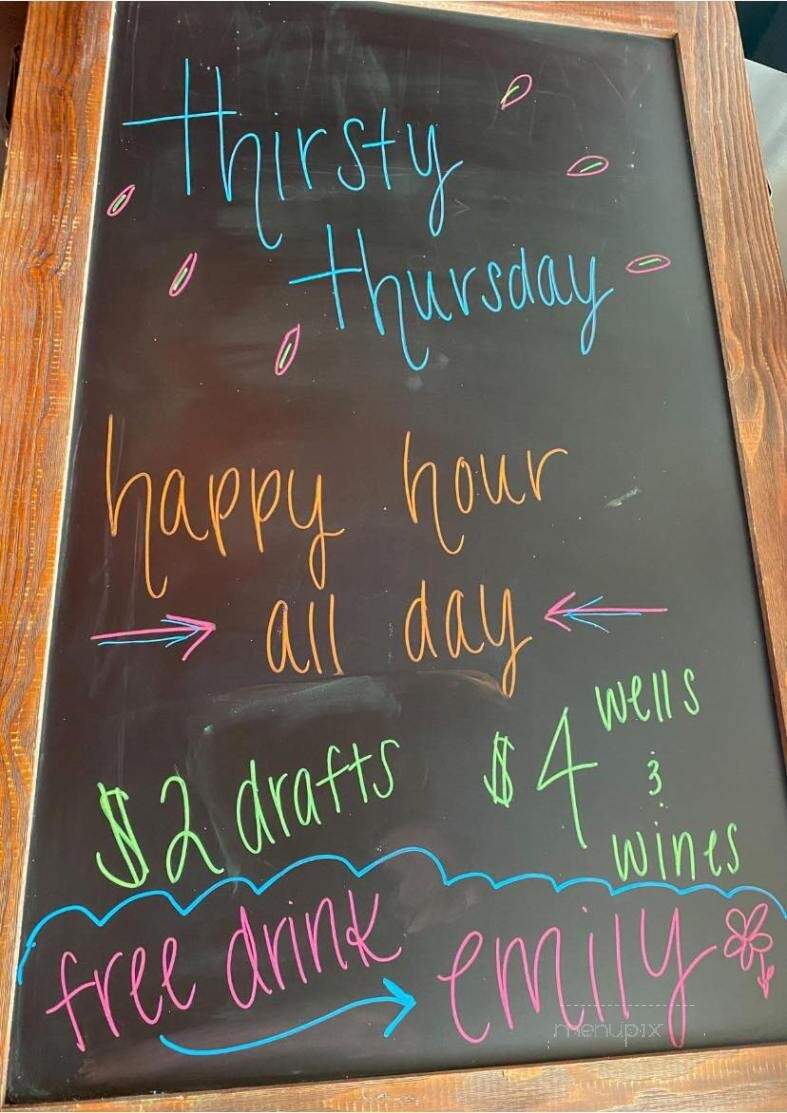 thirsty
thursday
happy hour
all day
$2 drafts $4 wells
&
wines
free drink emily
menupix